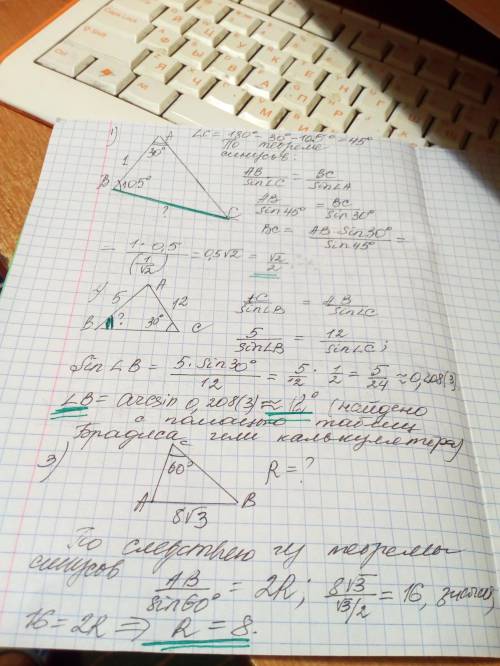 1)
∠C = 180° - 30° - 105° = 45°
По теореме
синусов:
A
30°
1
B
105°
?
C
AB/sin∠C = BC/sin∠A
AB/sin45° = BC/sin30°
BC = AB·sin30°/sin45° =
= 1·0,5/(1/√2) = 0,5√2 = √2/2
4)
A
5
12
B
?
30°
C
AC/sin∠B = AB/sin∠C
5/sin∠B = 12/sin∠C;
Sin∠B = 5·sin30°/12 = 5/12 · 1/2 = 5/24 ≈ 0,208(3)
∠B = arcsin 0,208(3) ≈ 12° (найдено
с помощью таблиц
Брадиса или калькулятора)
3)
C
60°
A
B
8√3
R = ?
По следствию из теоремы
синусов
AB/sin60° = 2R; 8√3/√3/2 = 16, значит,
16 = 2R ⇒ R = 8.